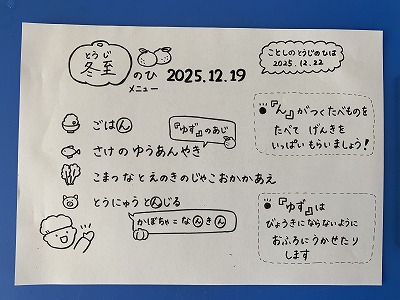 とうじ
冬至
のひ
メニュー
2025.12.19
ことしのとうじのひは
2025.12.22
ごはん
『ゆず』のあじ
さけのゆうあんやき
こまつなとえのきのじゃこおかかあえ
とうにゅうとんじる
かぼちゃ＝なんきん
『ん』がつくたべものを
たべて げんきを
いっぱいもらいましょう!
『ゆず』は
びょうきにならないように
おふろにうかせたり
します